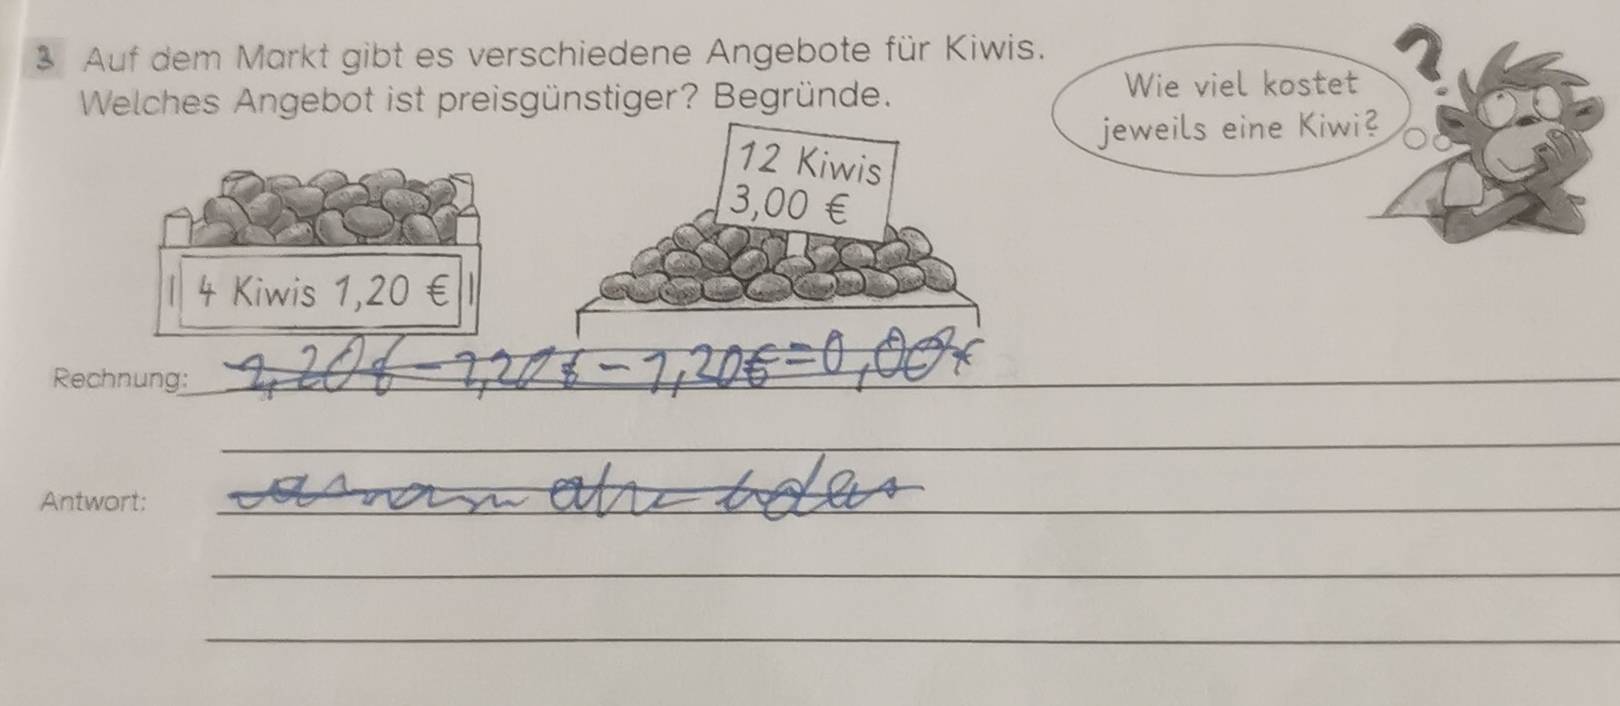 3 Auf dem Markt gibt es verschiedene Angebote für Kiwis.
Welches Angebot ist preisgünstiger? Begründe.
Wie viel kostet
jeweils eine Kiwi?
?
12 Kiwis
3,00 €
4 Kiwis 1,20 €
Rechnung: 1,20€ - 1,20€ - 1,20€ = 0,00€
Antwort: